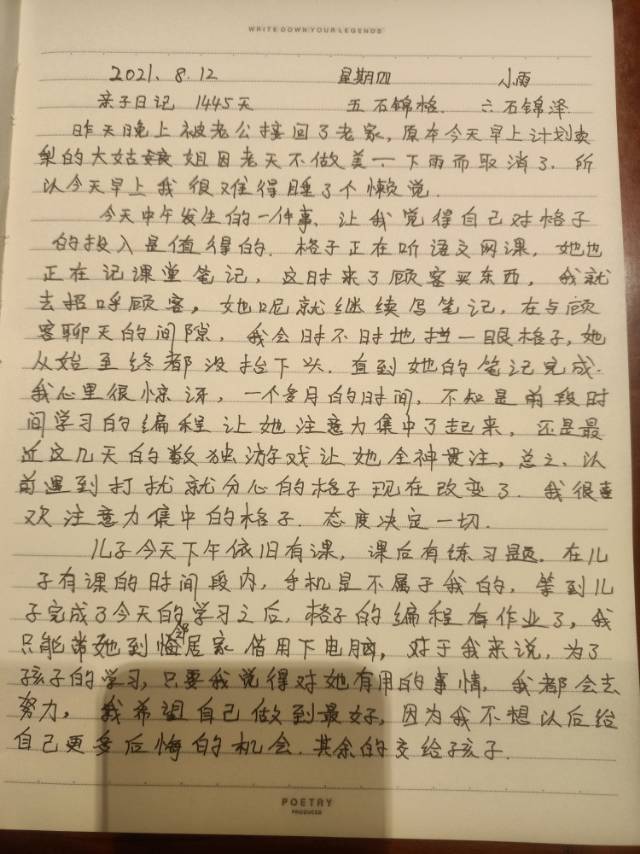 WRITE DOWN YOUR LEGENDS
2021. 8. 12 星期四 小雨
亲子日记 1445天 五 石锦格. 六 石锦泽
昨天晚上被老公接回了老家，原本今天早上计划卖
梨的大姑姐因老天不做美一下雨而取消了. 所
以今天早上我很难得睡了个懒觉.
今天中午发生的一件事. 让我觉得自己对格子
的投入是值得的. 格子正在听语文网课，她也
正在记课堂笔记，这时来了顾客买东西，我就
去招呼顾客，她呢就继续写笔记，在与顾
客聊天的间隙，我会时不时地一眼格子，她
从始至终都没抬下头. 直到她的笔记完成.
我心里很惊讶，一个多月的时间，不知是前段时
间学习的编程让她注意力集中了起来，还是最
近这几天的数独游戏让她全神贯注，总之、以
前遇到打扰就分心的格子现在改变了. 我很喜
欢注意力集中的格子. 态度决定一切.
儿子今天下午依旧有课，课后有练习题. 在儿
子有课的时间段内，手机是不属于我的，等到儿
子完成了今天的学习之后，格子的编程有作业了，我
只能带她到居家借用下电脑，对于我来说，为了
孩子的学习，只要我觉得对她有用的事情，我都会去
努力，我希望自己做到最好，因为我不想以后给
自己更多后悔的机会. 其余的交给孩子.
POETRY
PRODUCER